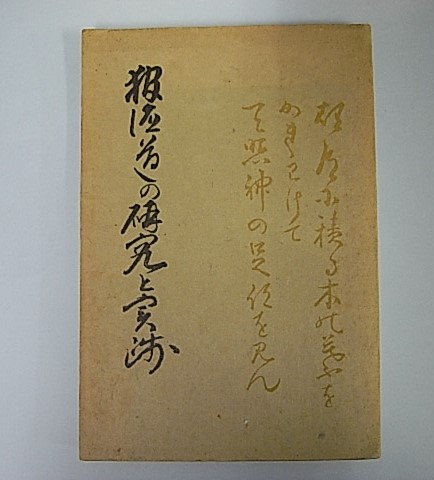 故道に積る木の葉を
かきわけて
天照神の足跡を見ん
報徳道の研究と実践